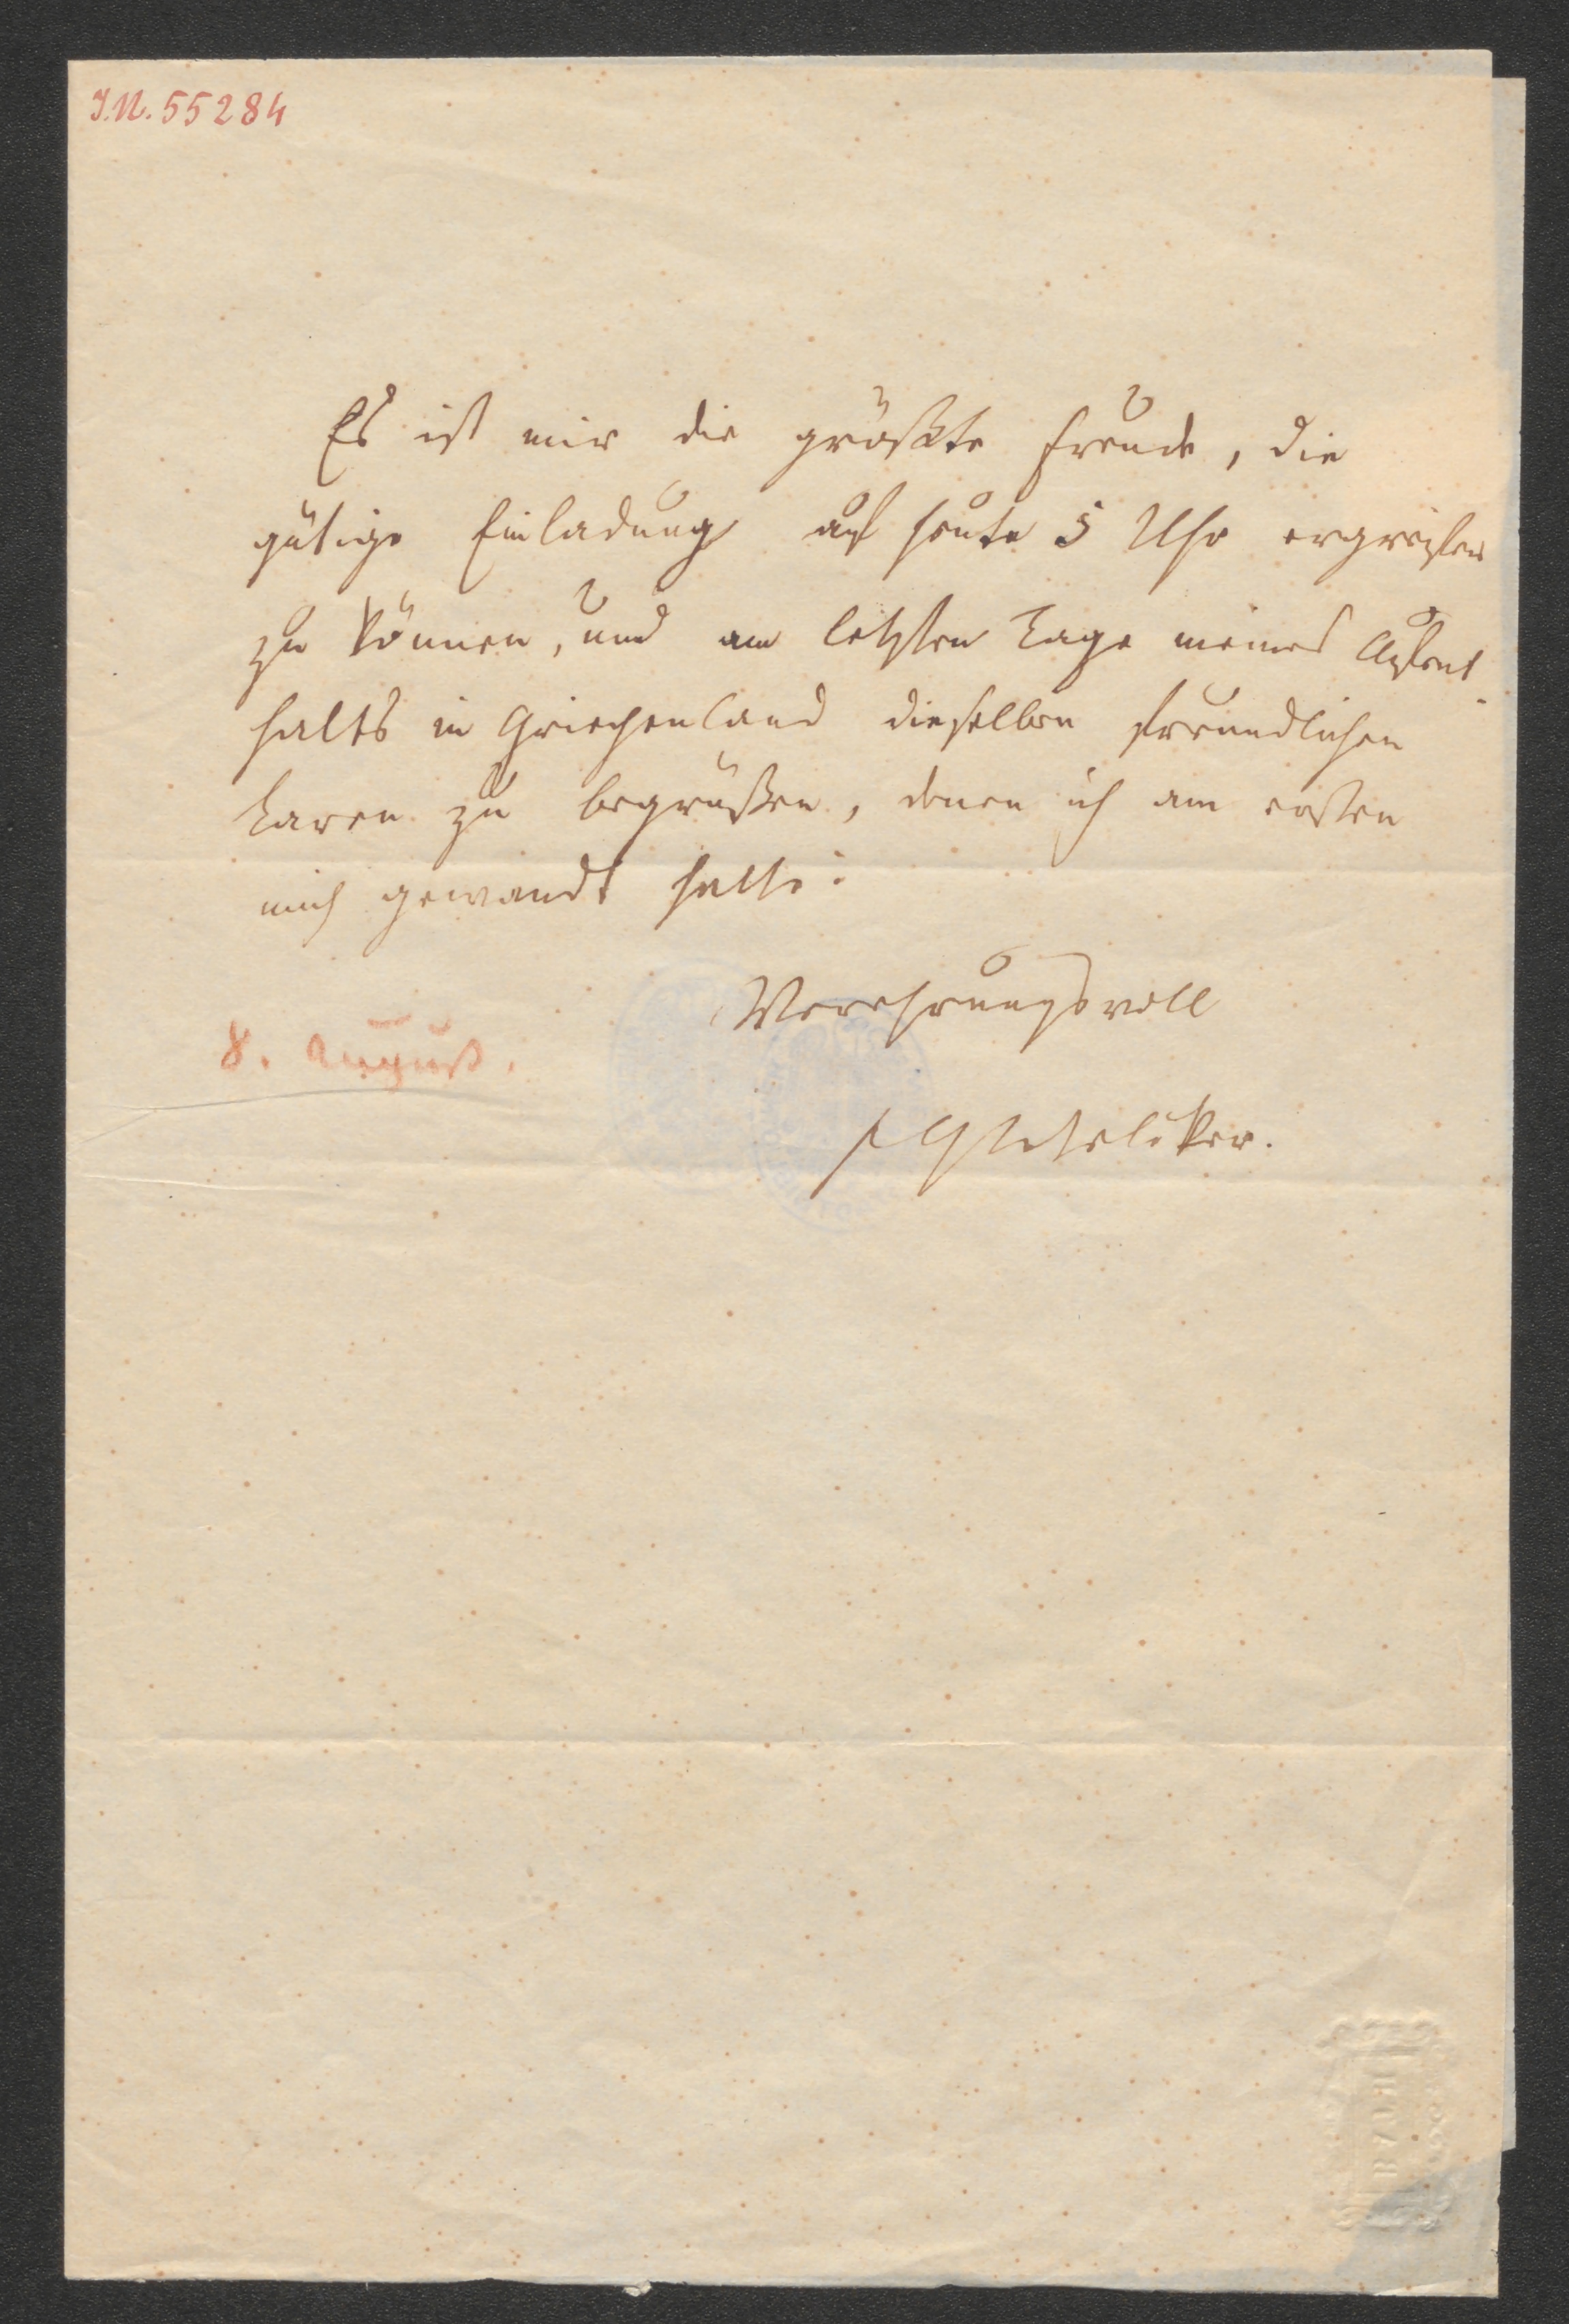 I.N. 55284
Es ist mir die größte Freude, die
gütige Einladung auf heute 5 Uhr ergreifen
zu können, und am letzten Tage meines Aufent
halts in Griechenland dieselben freundlichen
Laren zu begrüßen, denen ich am ersten
mich gewandt hatte.
Verehrungsvoll
8. August.